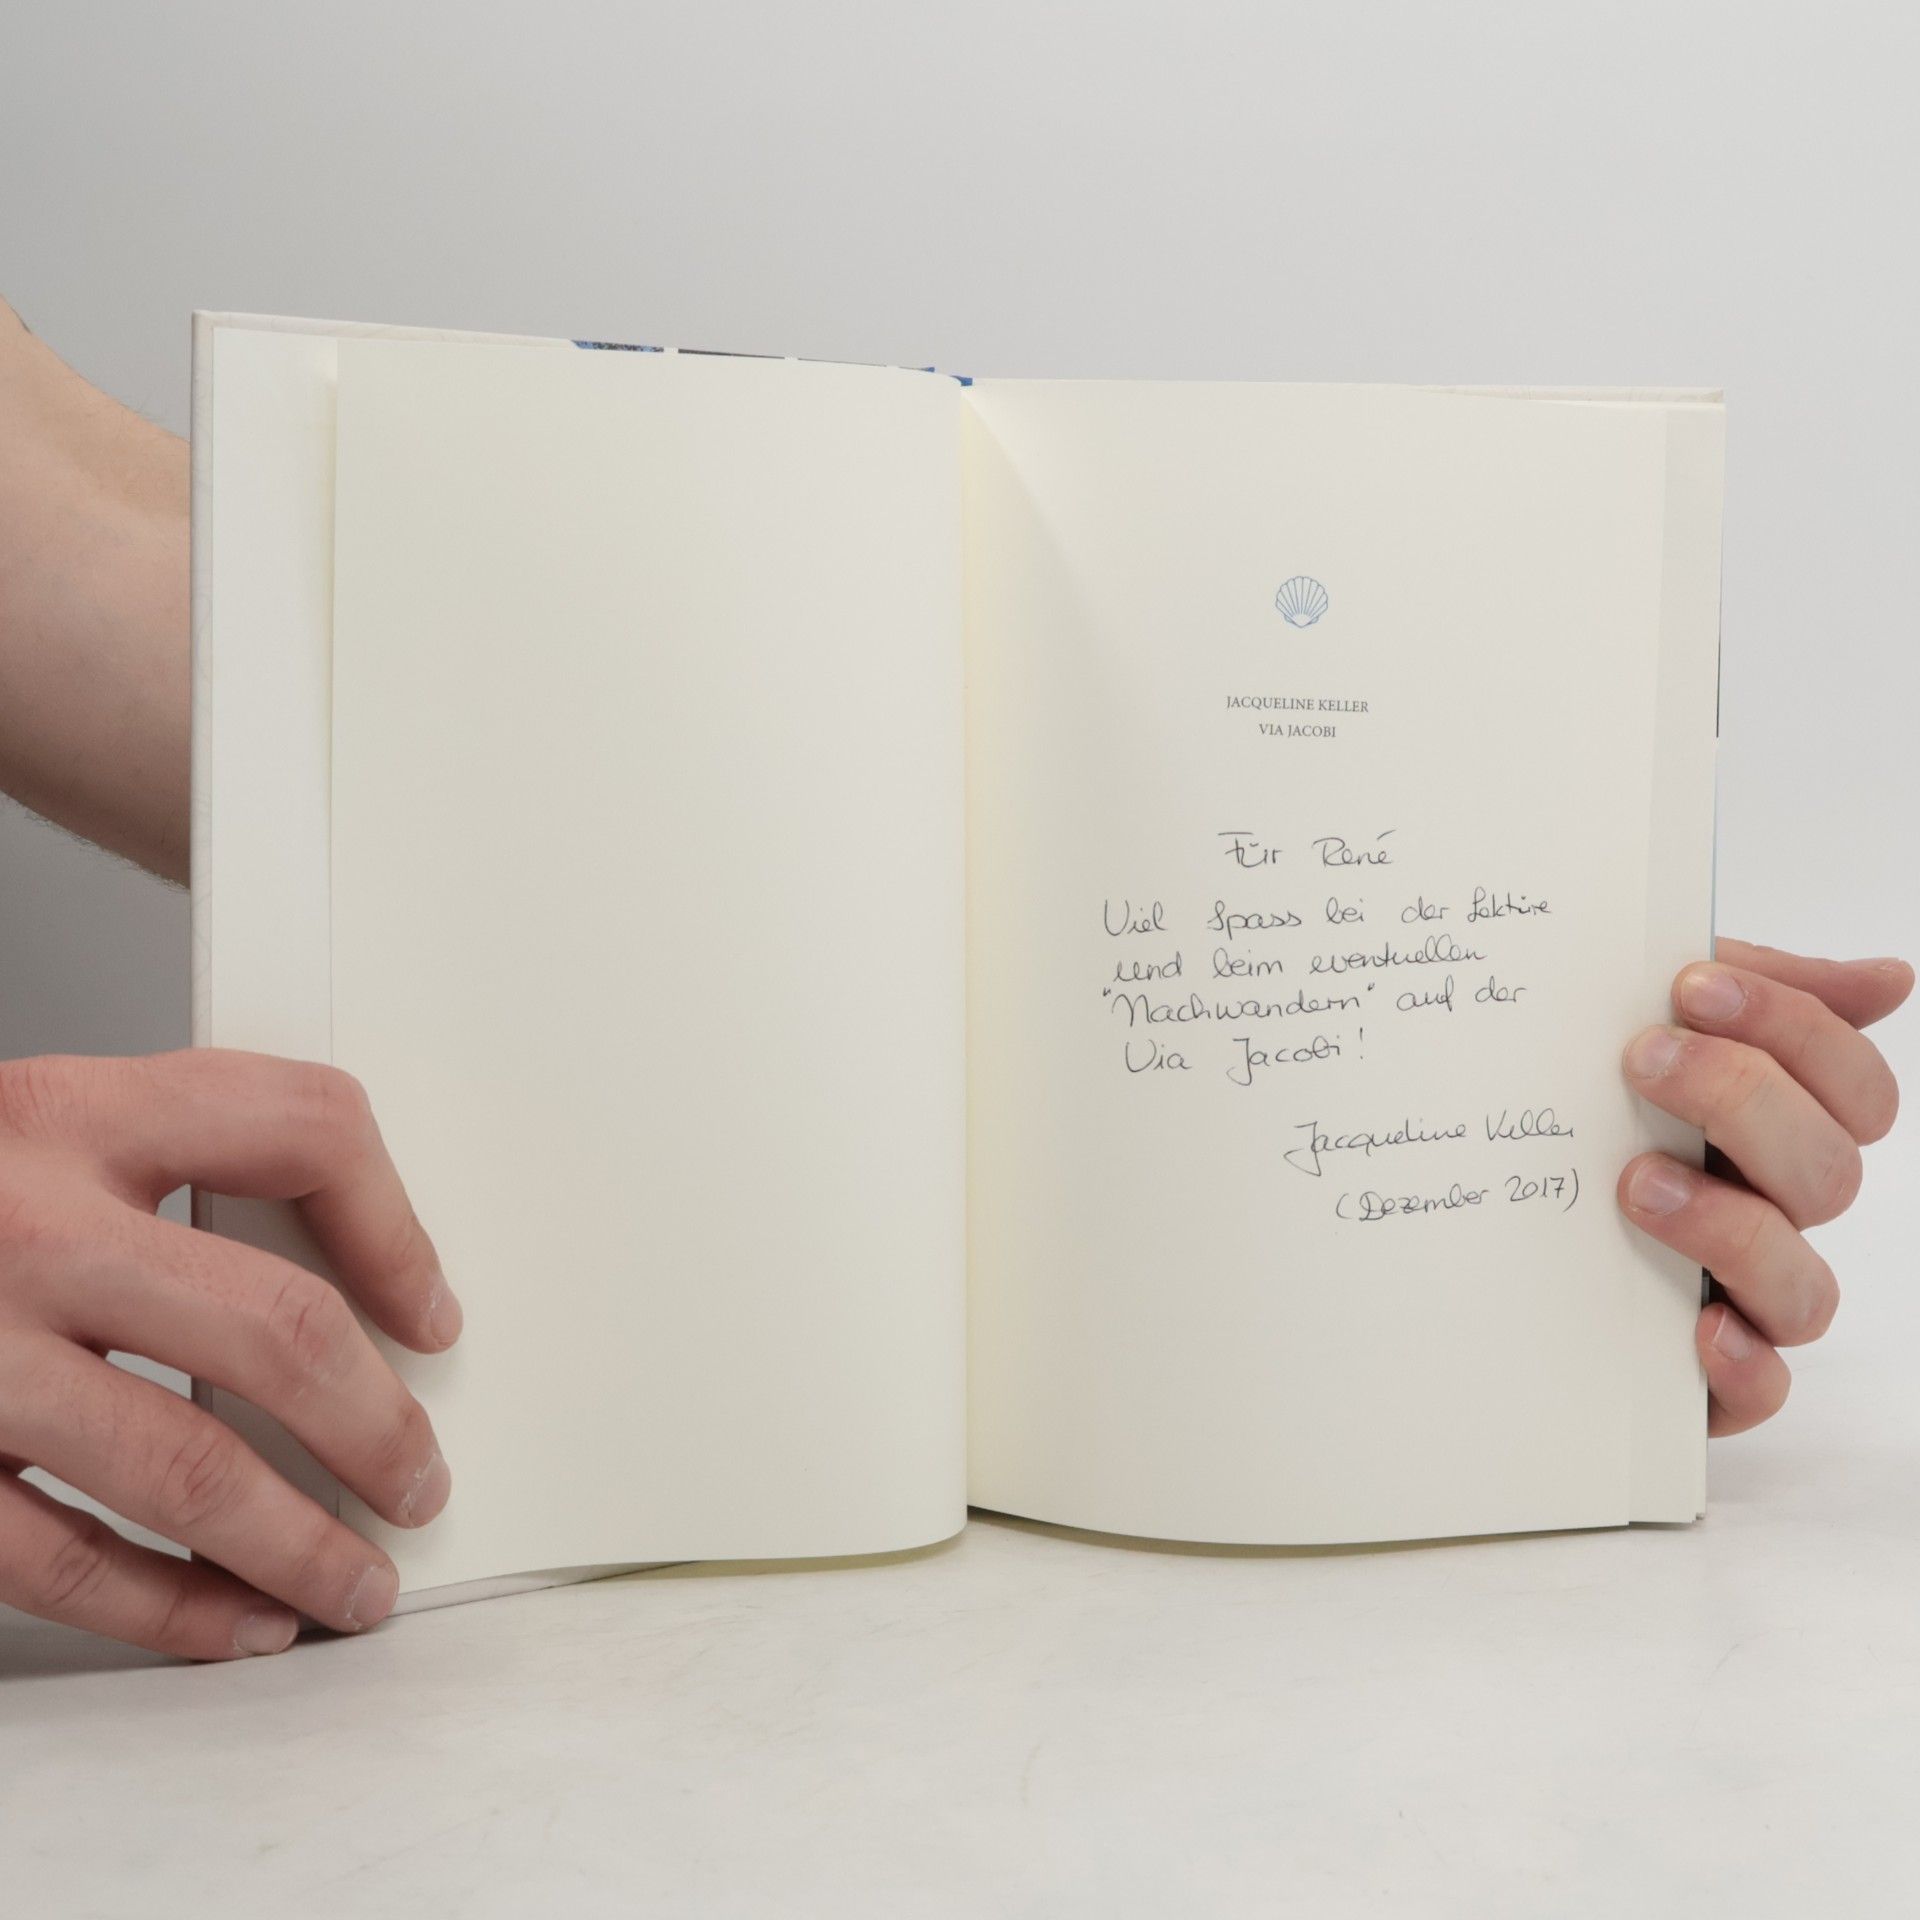 JACQUELINE KELLER
VIA JACOBI
Für René
Viel Spass bei der Lektüre
und beim eventuellen
"Nachwandern" auf der
Via Jacobi!
Jacqueline Keller
(Dezember 2017)